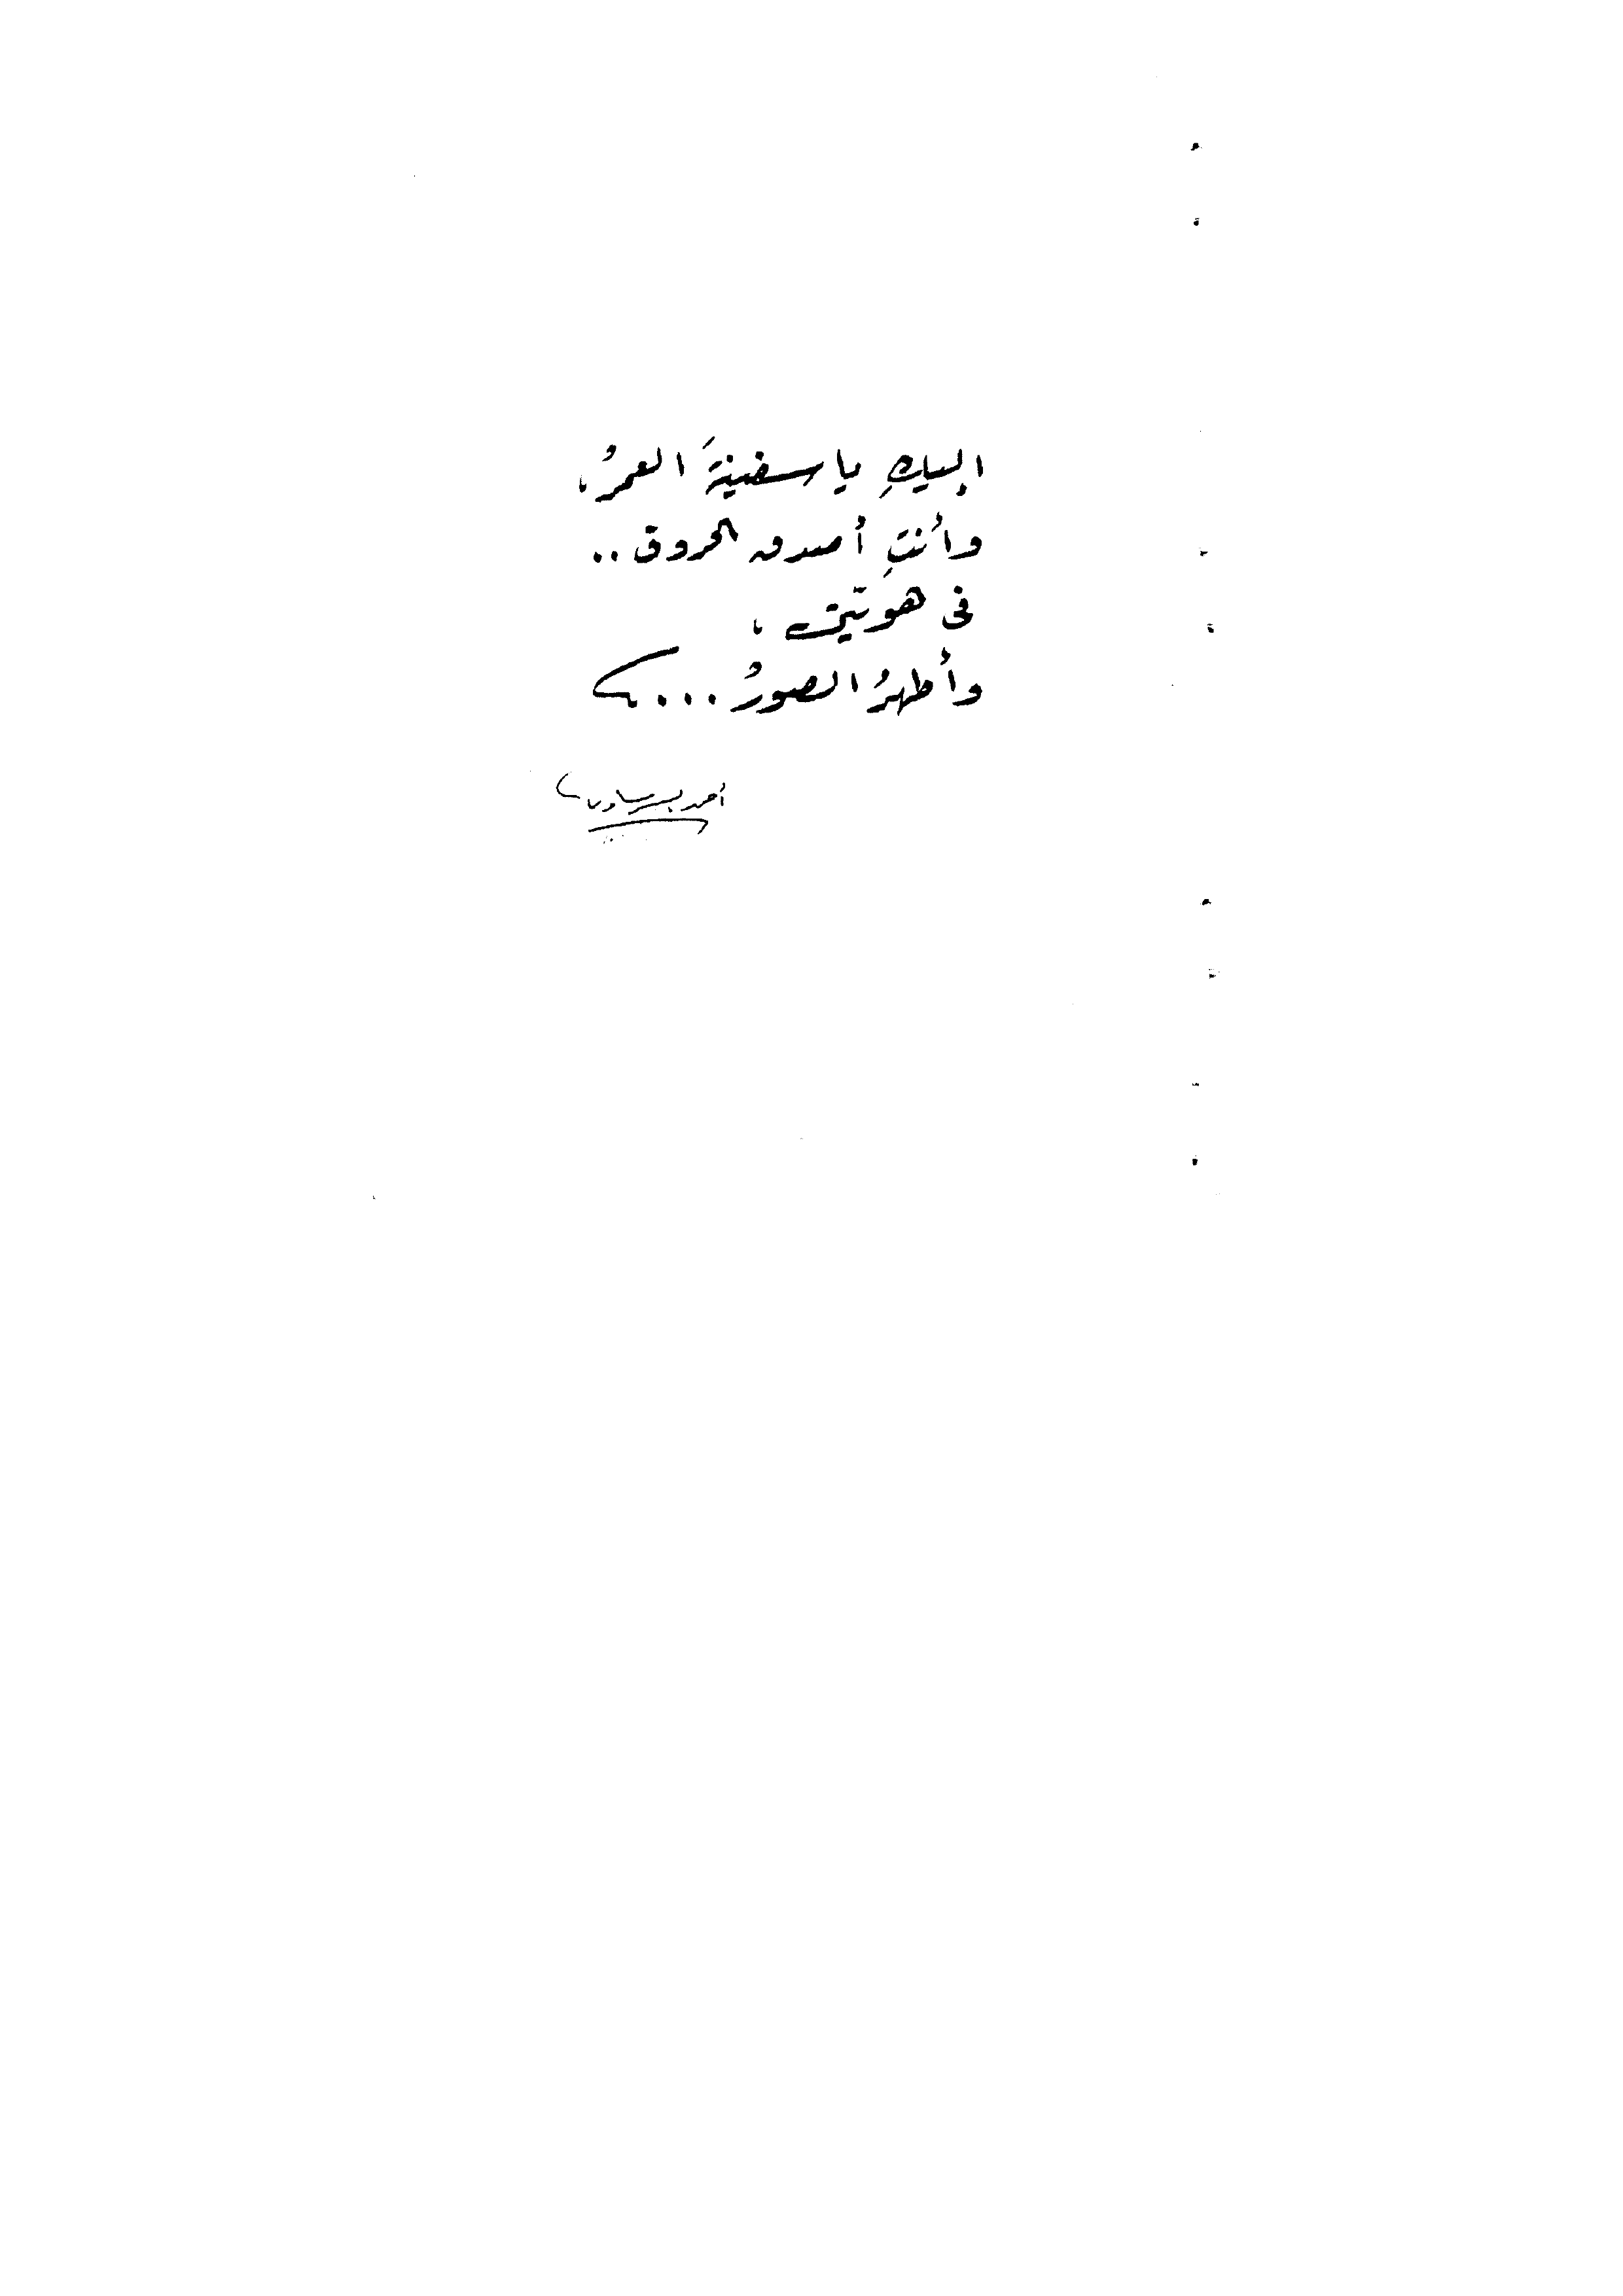 إليكِ يا سفينةَ العمرْ،
وأنتِ أصدق الحروف..
في هويّتي،
وأطهرُ الصورْ...
أحمد